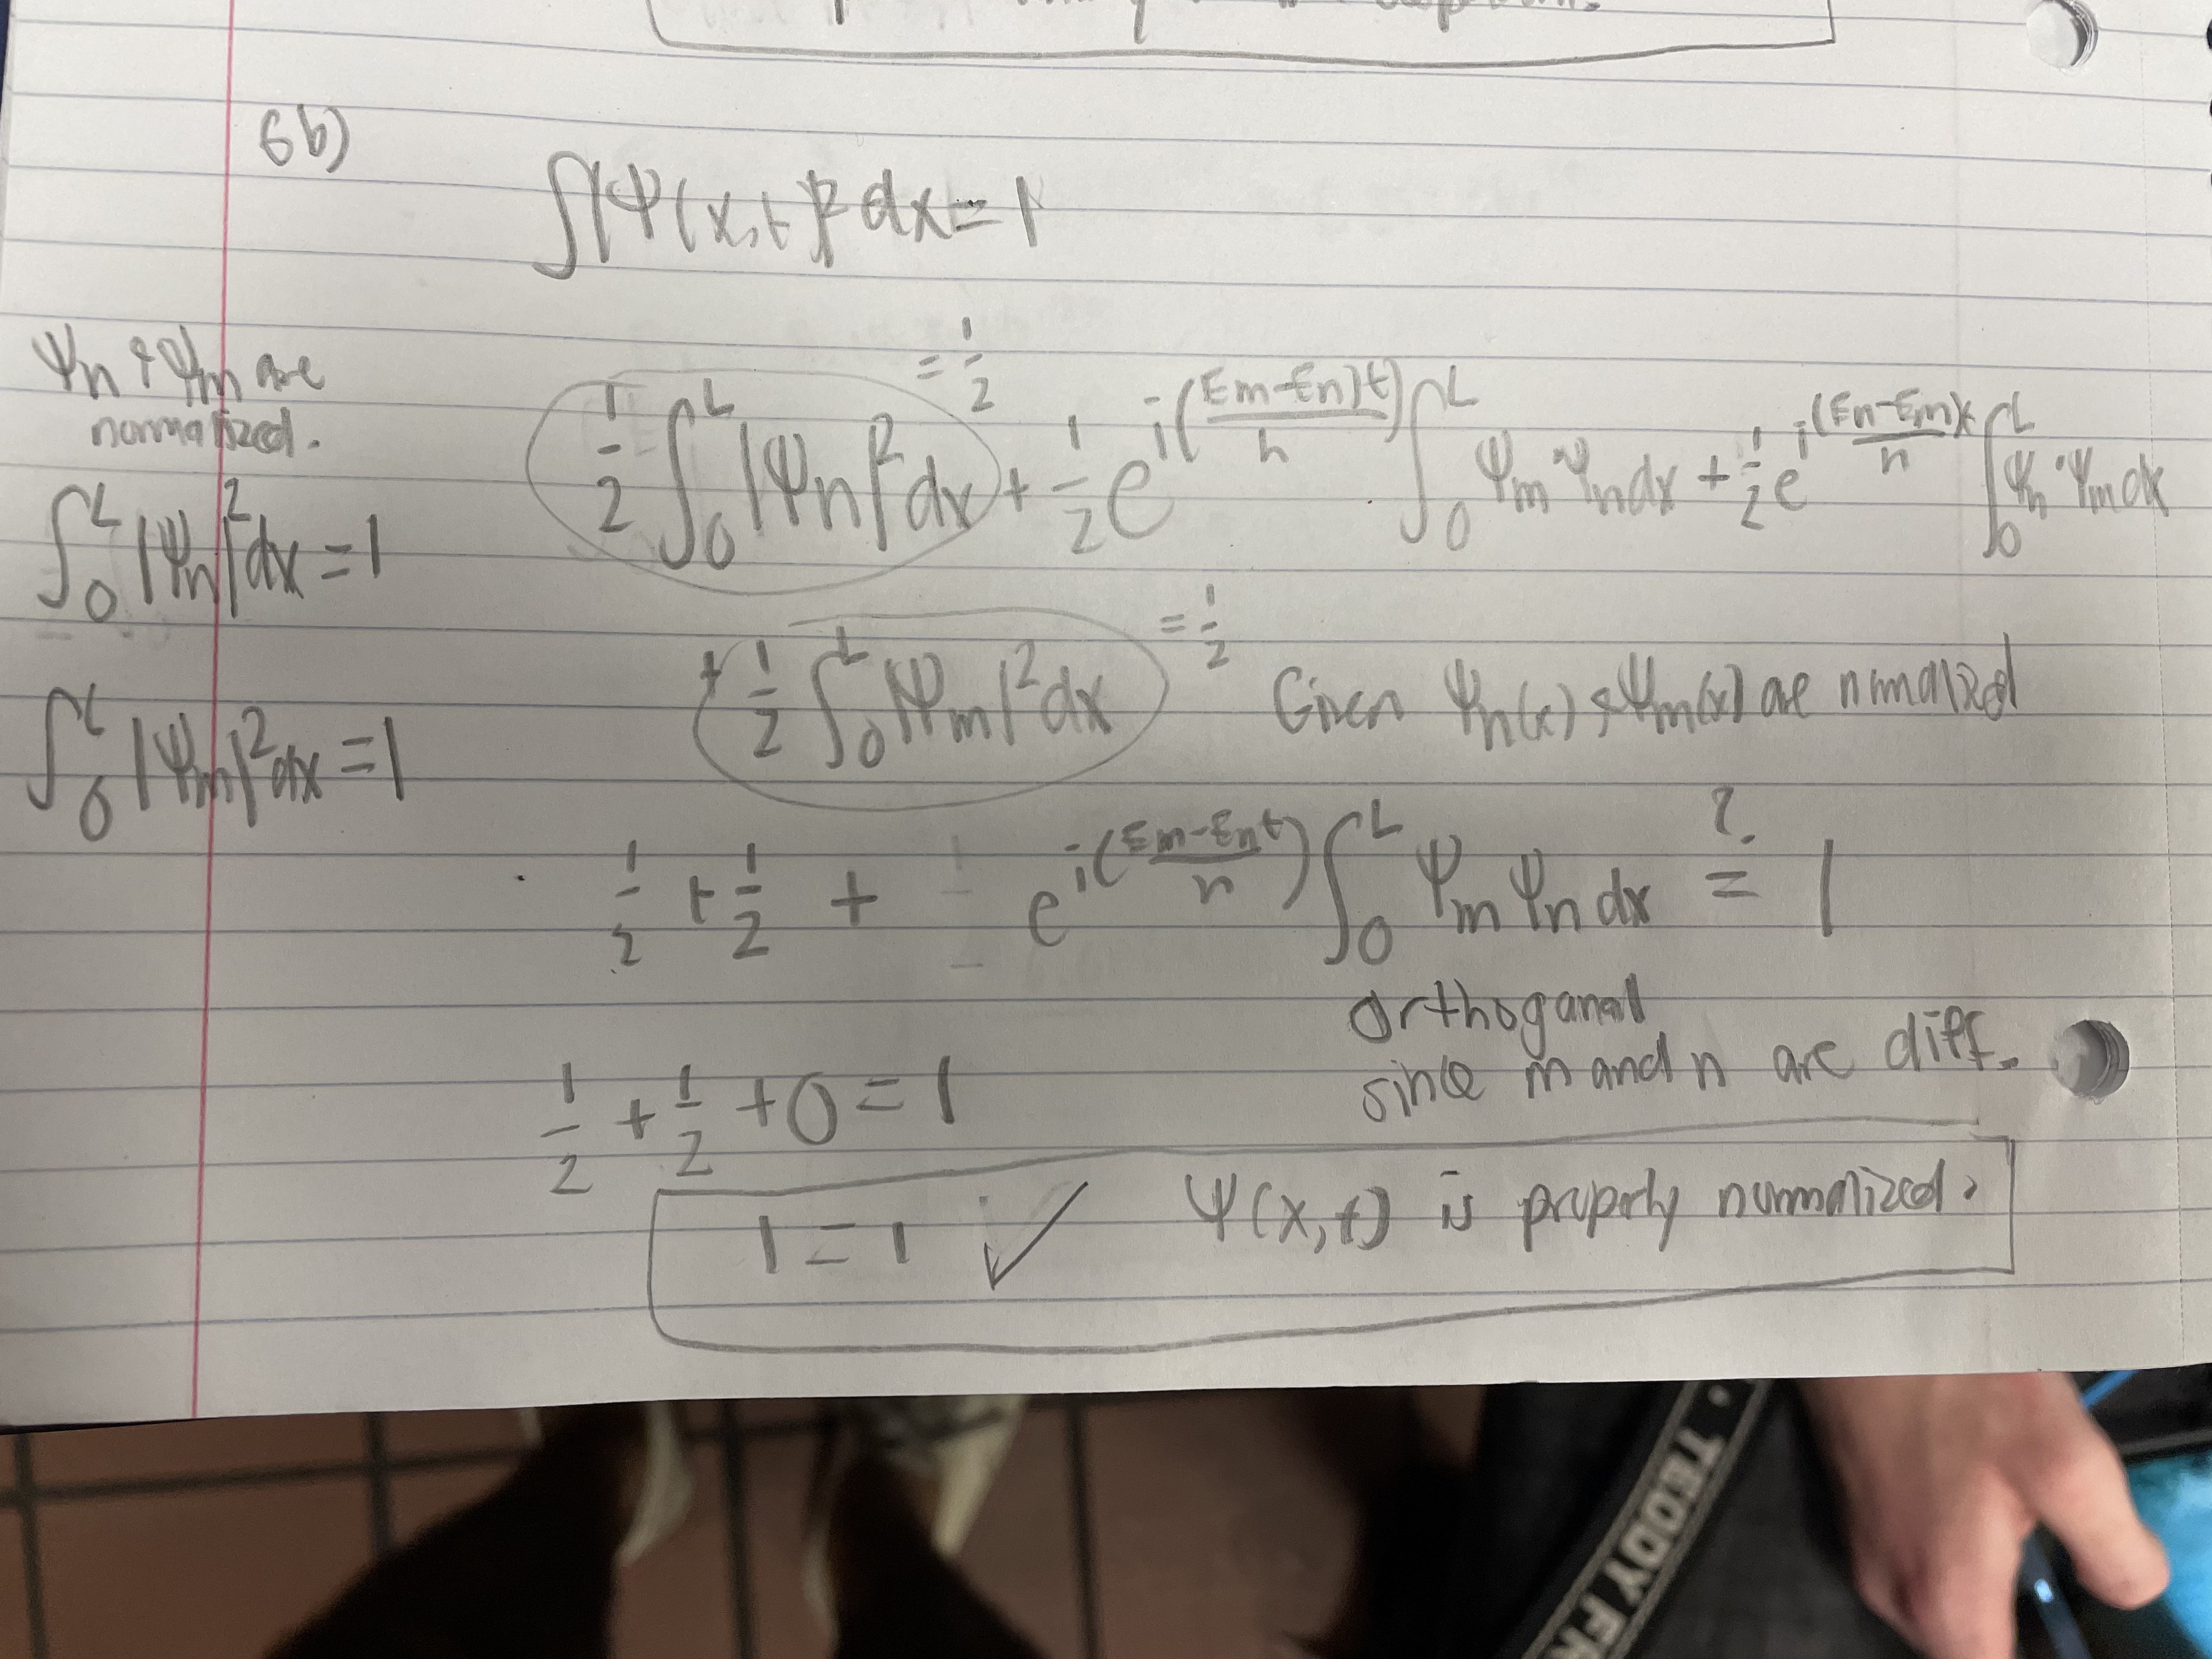 6b)
∫|Ψ(x,t)|² dx = 1
Ψn & Ψm are
normalized.
∫₀ᴸ |Ψn|² dx = 1
∫₀ᴸ |Ψm|² dx = 1
= 1/2
1/2 ∫₀ᴸ |Ψn|² dx + 1/2 e^{i((Em-En)t/h)} ∫₀ᴸ Ψm* Ψn dx + 1/2 e^{i(En-Em)t/h} ∫₀ᴸ Ψn* Ψm dx
= 1/2
+ 1/2 ∫₀ᴸ |Ψm|² dx Given Ψn(x) & Ψm(x) are normalized
1/2 + 1/2 + e^{i((Em-Ent)/h)} ∫₀ᴸ Ψm Ψn dx ?= 1
orthoganal
since m and n are diff.
1/2 + 1/2 + 0 = 1
1 = 1 ✓ Ψ(x,t) is properly normalized.
TEDDY FR